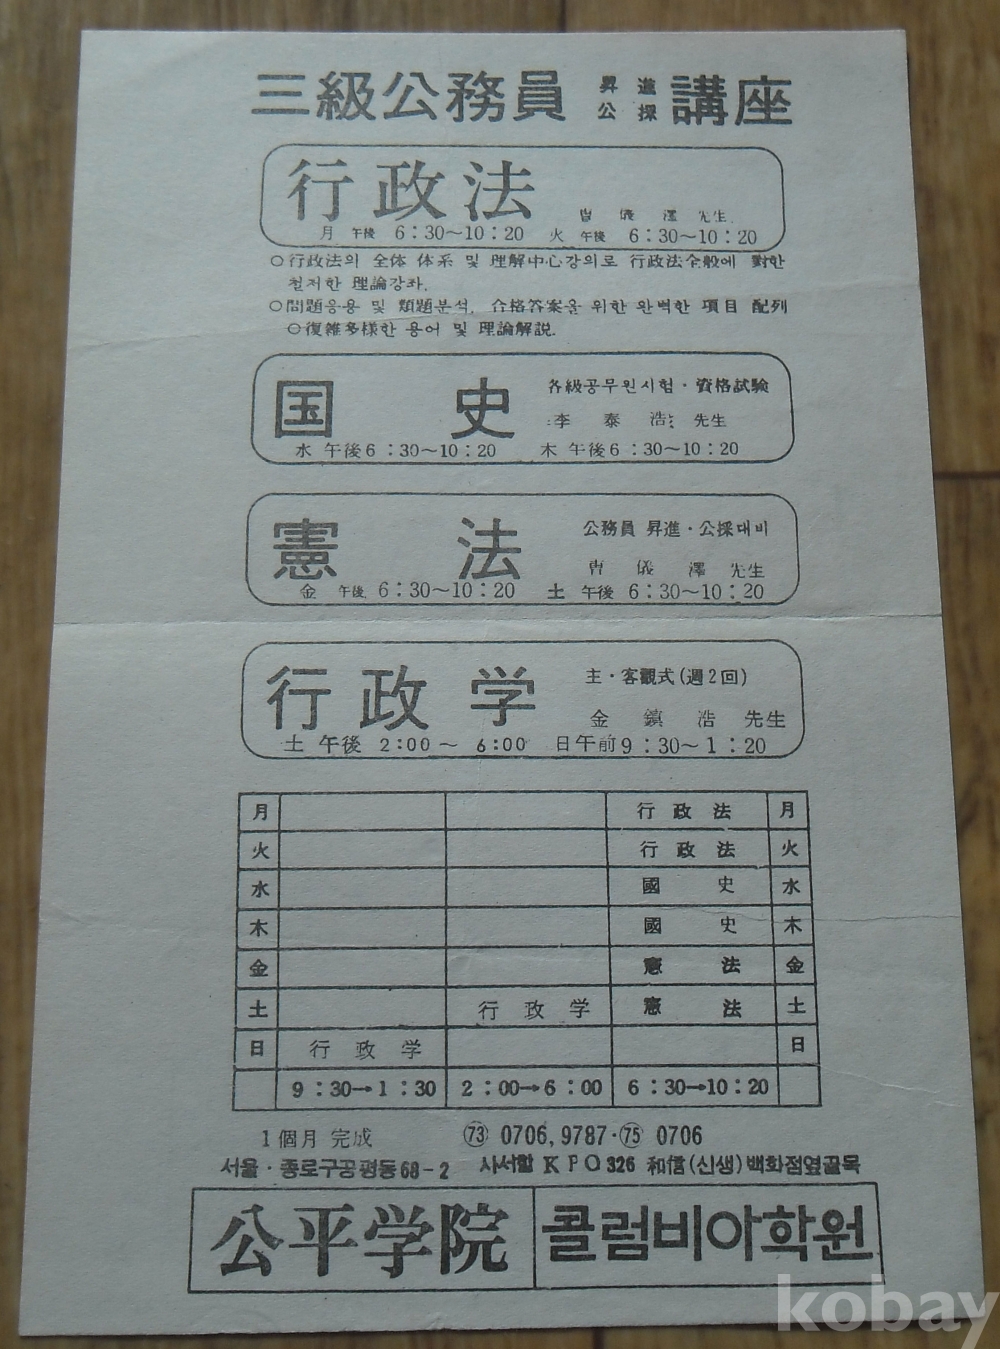 三級公務員 昇進 公採 講座
行政法
曺儀澤 先生
月 午後 6:30~10:20 火 午後 6:30~10:20
○行政法의 全体 体系 및 理解中心강의로 行政法全般에 對한
철저한 理論강좌.
○問題응용 및 類題분석, 合格答案을 위한 완벽한 項目 配列
○復雜多樣한 용어 및 理論解説.
国史
各級공무원시험·資格試驗
李泰浩 先生
水 午後 6:30~10:20 木 午後 6:30~10:20
憲法
公務員 昇進·公採대비
曺儀澤 先生
金 午後 6:30~10:20 土 午後 6:30~10:20
行政学
主·客觀式(週2回)
金鎭浩 先生
土 午後 2:00~6:00 日午前 9:30~1:20
月 行政法 月
火 行政法 火
水 國史 水
木 國史 木
金 憲法 金
土 行政学 憲法 土
日 行政学 日
9:30→1:30 2:00→6:00 6:30→10:20
1個月 完成 ㉝ 0706, 9787·㉟ 0706
서울·종로구공평동69-2 사서함 KPO 326 和信(신생)백화점옆골목
公平学院 콜럼비아학원
kobay